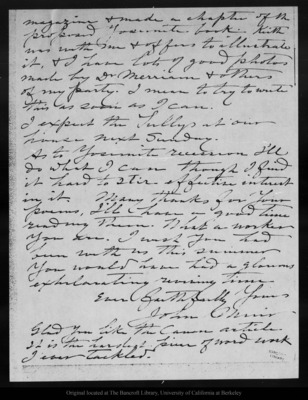 magazine & make a chapter of the
proposed Yosemite book. Keith
was with me & offers to illustrate
it, & I have lots of good photos
made by Dr. Merriam & others
of my party. I mean to try to write
this as soon as I can.
I expect the at our
house next Sunday.
As to Yosemite recession I'll
do what I can though I find
it hard to stir effective interest
in it. Many thanks for your
poems, I'll have a good time
reading them. What a worker
you are. I wish you had
been with us this summer
You would have had a glorious
exhilarating time
Ever faithfully yours
John Muir
Glad you like the Canon article
It is the toughest piece of word work
I ever tackled.
Original located at The Bancroft Library, University of California at Berkeley